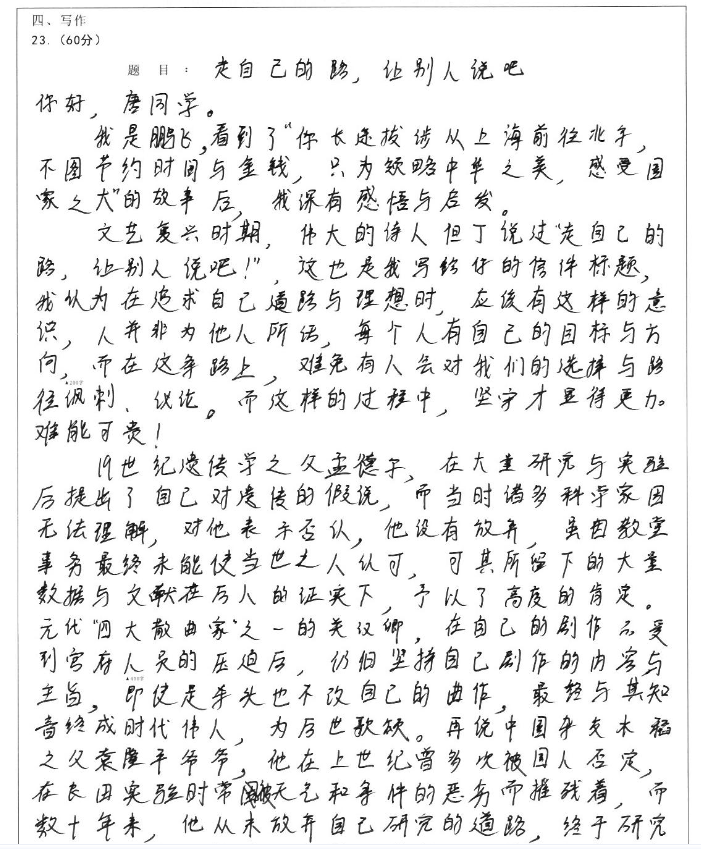 四、写作
23.（60分）
题 目： 走自己的路，让别人说吧
你好，唐同学。
我是鹏飞，看到了“你长途拔涉从上海前往北京，
不图节约时间与金钱，只为领略中华之美，感受国
家之大”的故事后，我深有感悟与启发。
文艺复兴时期，伟大的诗人但丁说过“走自己的
路，让别人说吧！”，这也是我写给你的信件标题，
我认为在追求自己道路与理想时，应该有这样的意
识，人并非为他人所活，每个人有自己的目标与方
向，而在这条路上，难免有人会对我们的选择与路
▲200字
径讽刺、议论。而这样的过程中，坚守才显得更加
难能可贵！
19世纪遗传学之父孟德尔，在大量研究与实验
后提出了自己对遗传的假说，而当时诸多科学家因
无法理解，对他表示否认，他没有放弃，虽因教堂
事务最终未能使当世之人认可，可其所留下的大量
数据与文献在后人的证实下，予以了高度的肯定。
元代“四大散曲家”之一的关汉卿，在自己的剧作受
到官府人员的压迫后，仍旧坚持自己剧作的内容与
▲400字
主旨，即使是杀头也不改自己的曲作，最终与其知
音终成时代伟人，为后世歌颂。再说中国杂交水稻
之父袁隆平爷爷，他在上世纪曾多次被国人否定，
在农田实验时常被天气和条件的恶劣而摧残着，而
数十年来，他从未放弃自己研究的道路，终于研究